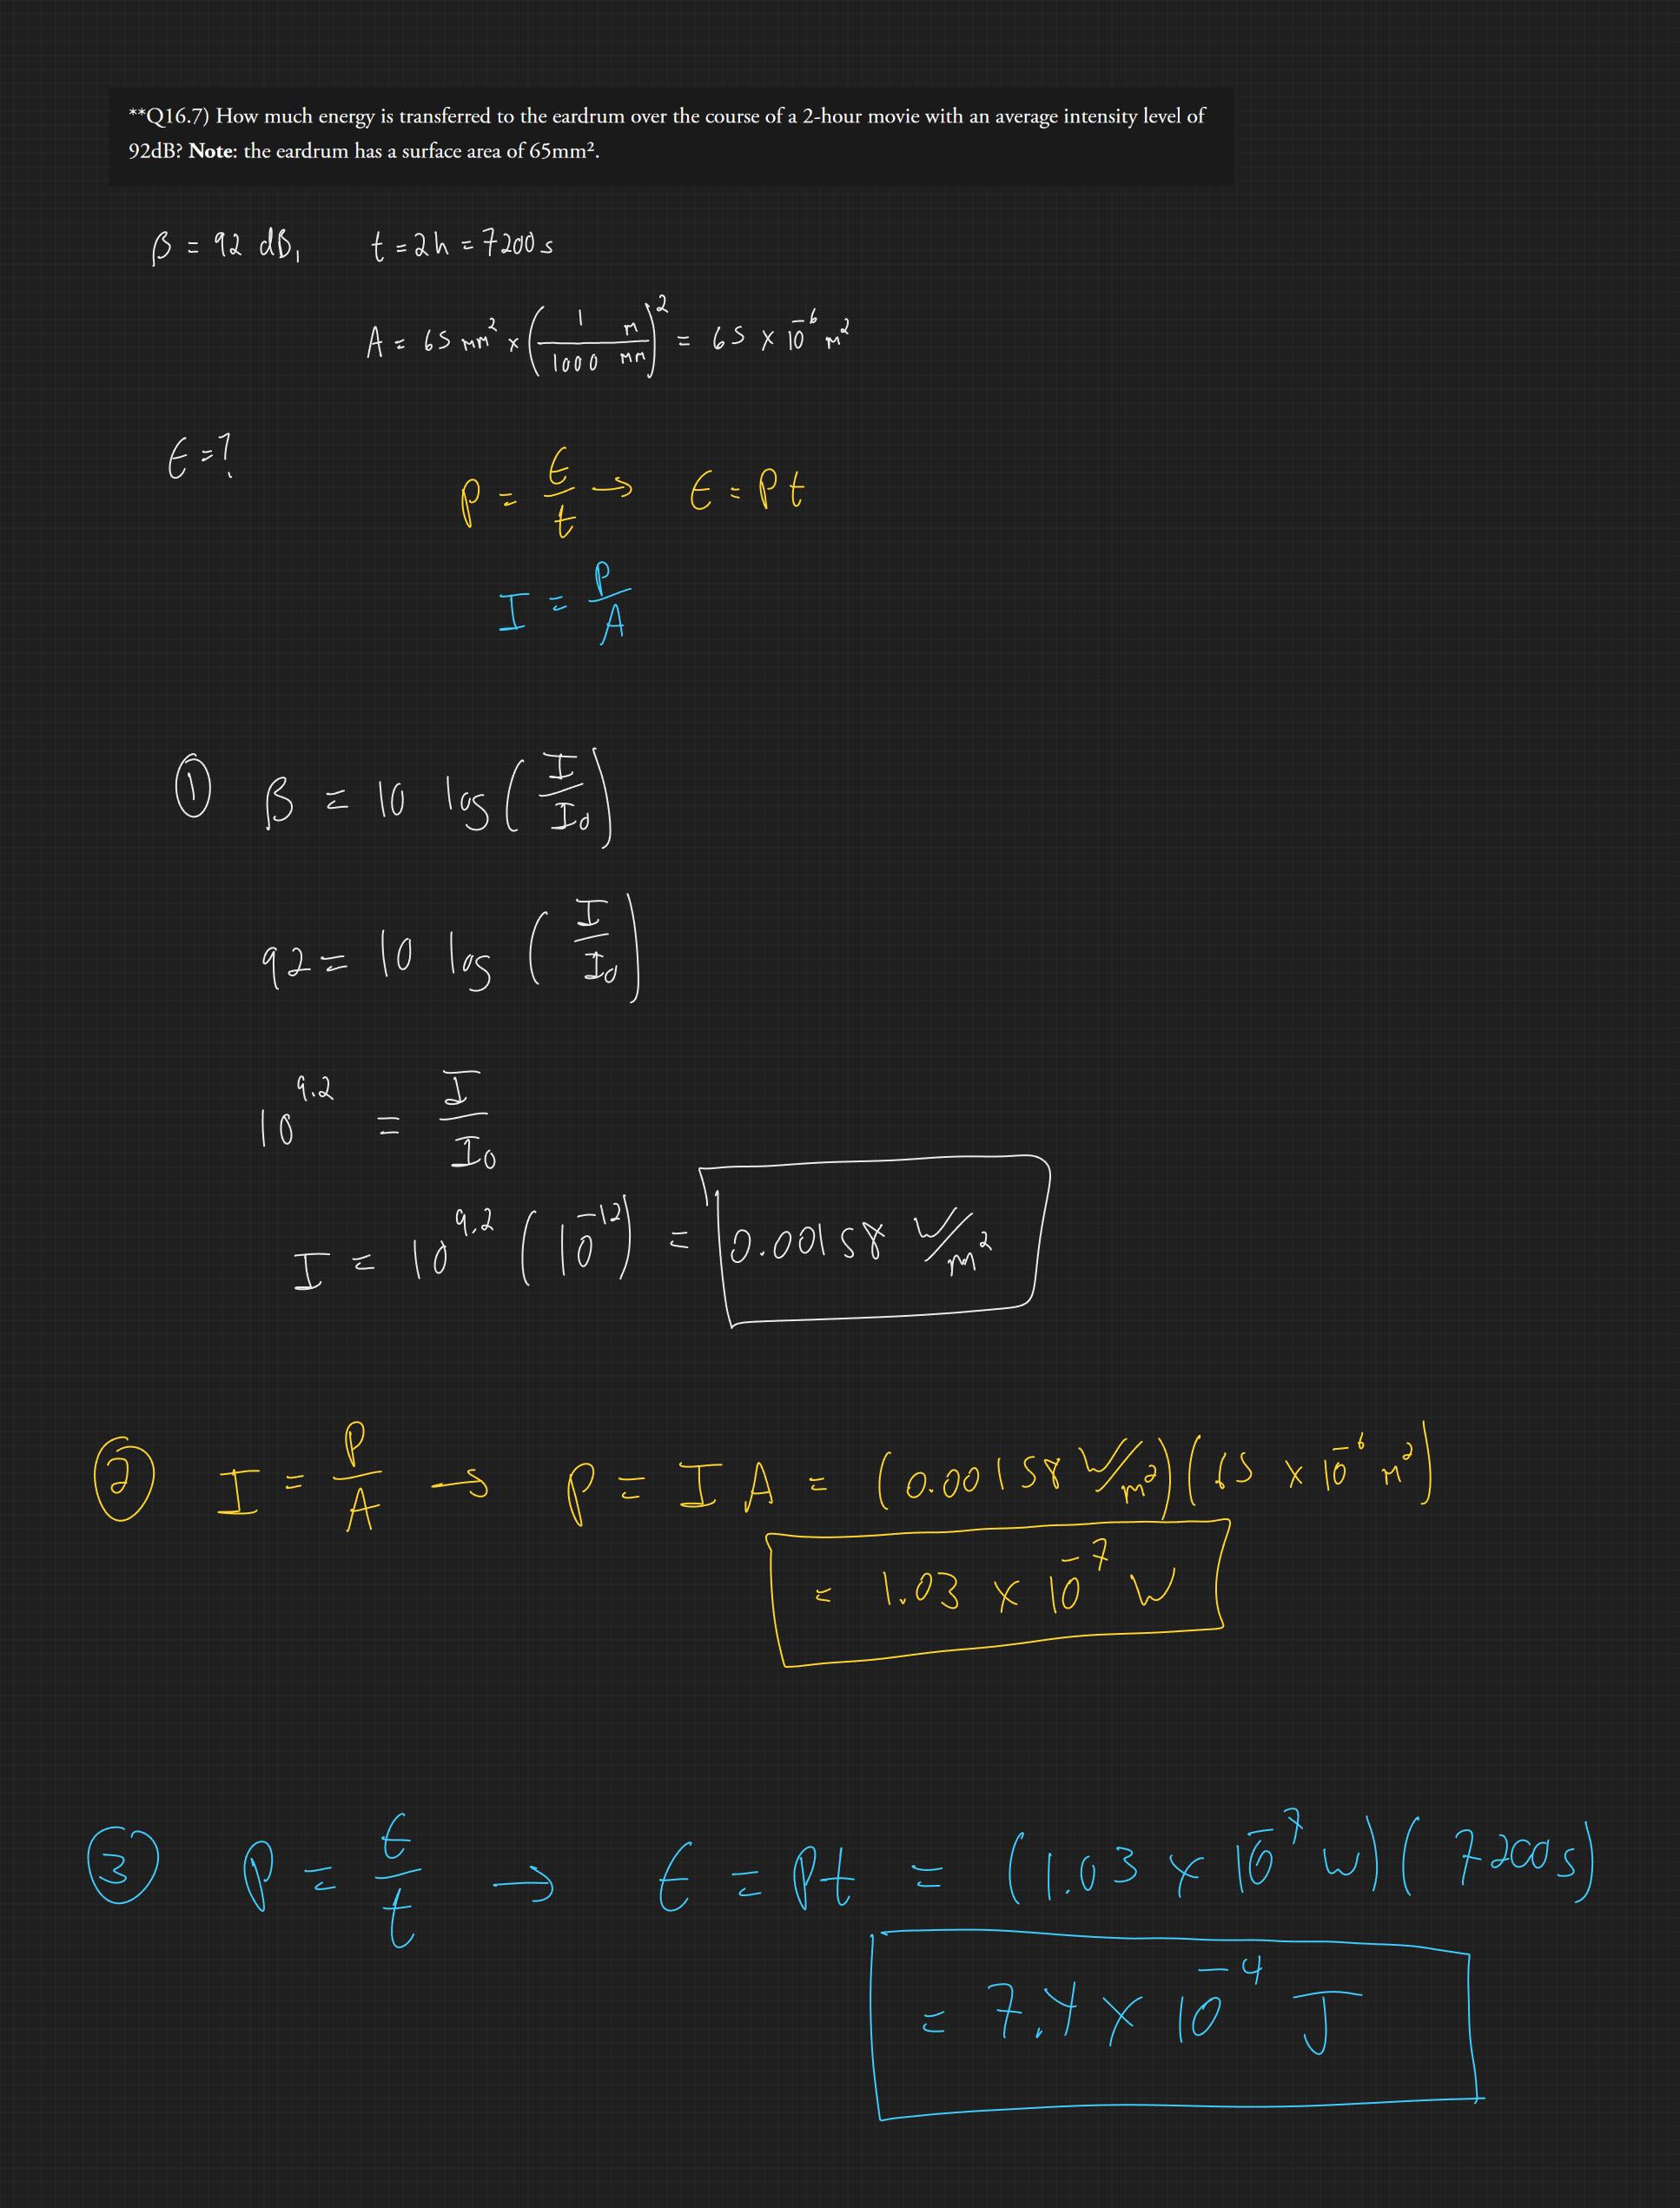 **Q16.7) How much energy is transferred to the eardrum over the course of a 2-hour movie with an average intensity level of
92dB? Note: the eardrum has a surface area of 65mm².
β = 92 dB, t = 2h = 7200 s
A = 65 mm² × (1 m / 1000 mm)² = 65 × 10⁻⁶ m²
E = ?
P = E/t → E = Pt
I = P/A
① β = 10 log (I/I₀)
92 = 10 log (I/I₀)
10^9.2 = I/I₀
I = 10^9.2 (10⁻¹²) = 0.00158 W/m²
② I = P/A → P = IA = (0.00158 W/m²)(65 × 10⁻⁶ m²)
= 1.03 × 10⁻⁷ W
③ P = E/t → E = Pt = (1.03 × 10⁻⁷ W)(7200 s)
= 7.4 × 10⁻⁴ J